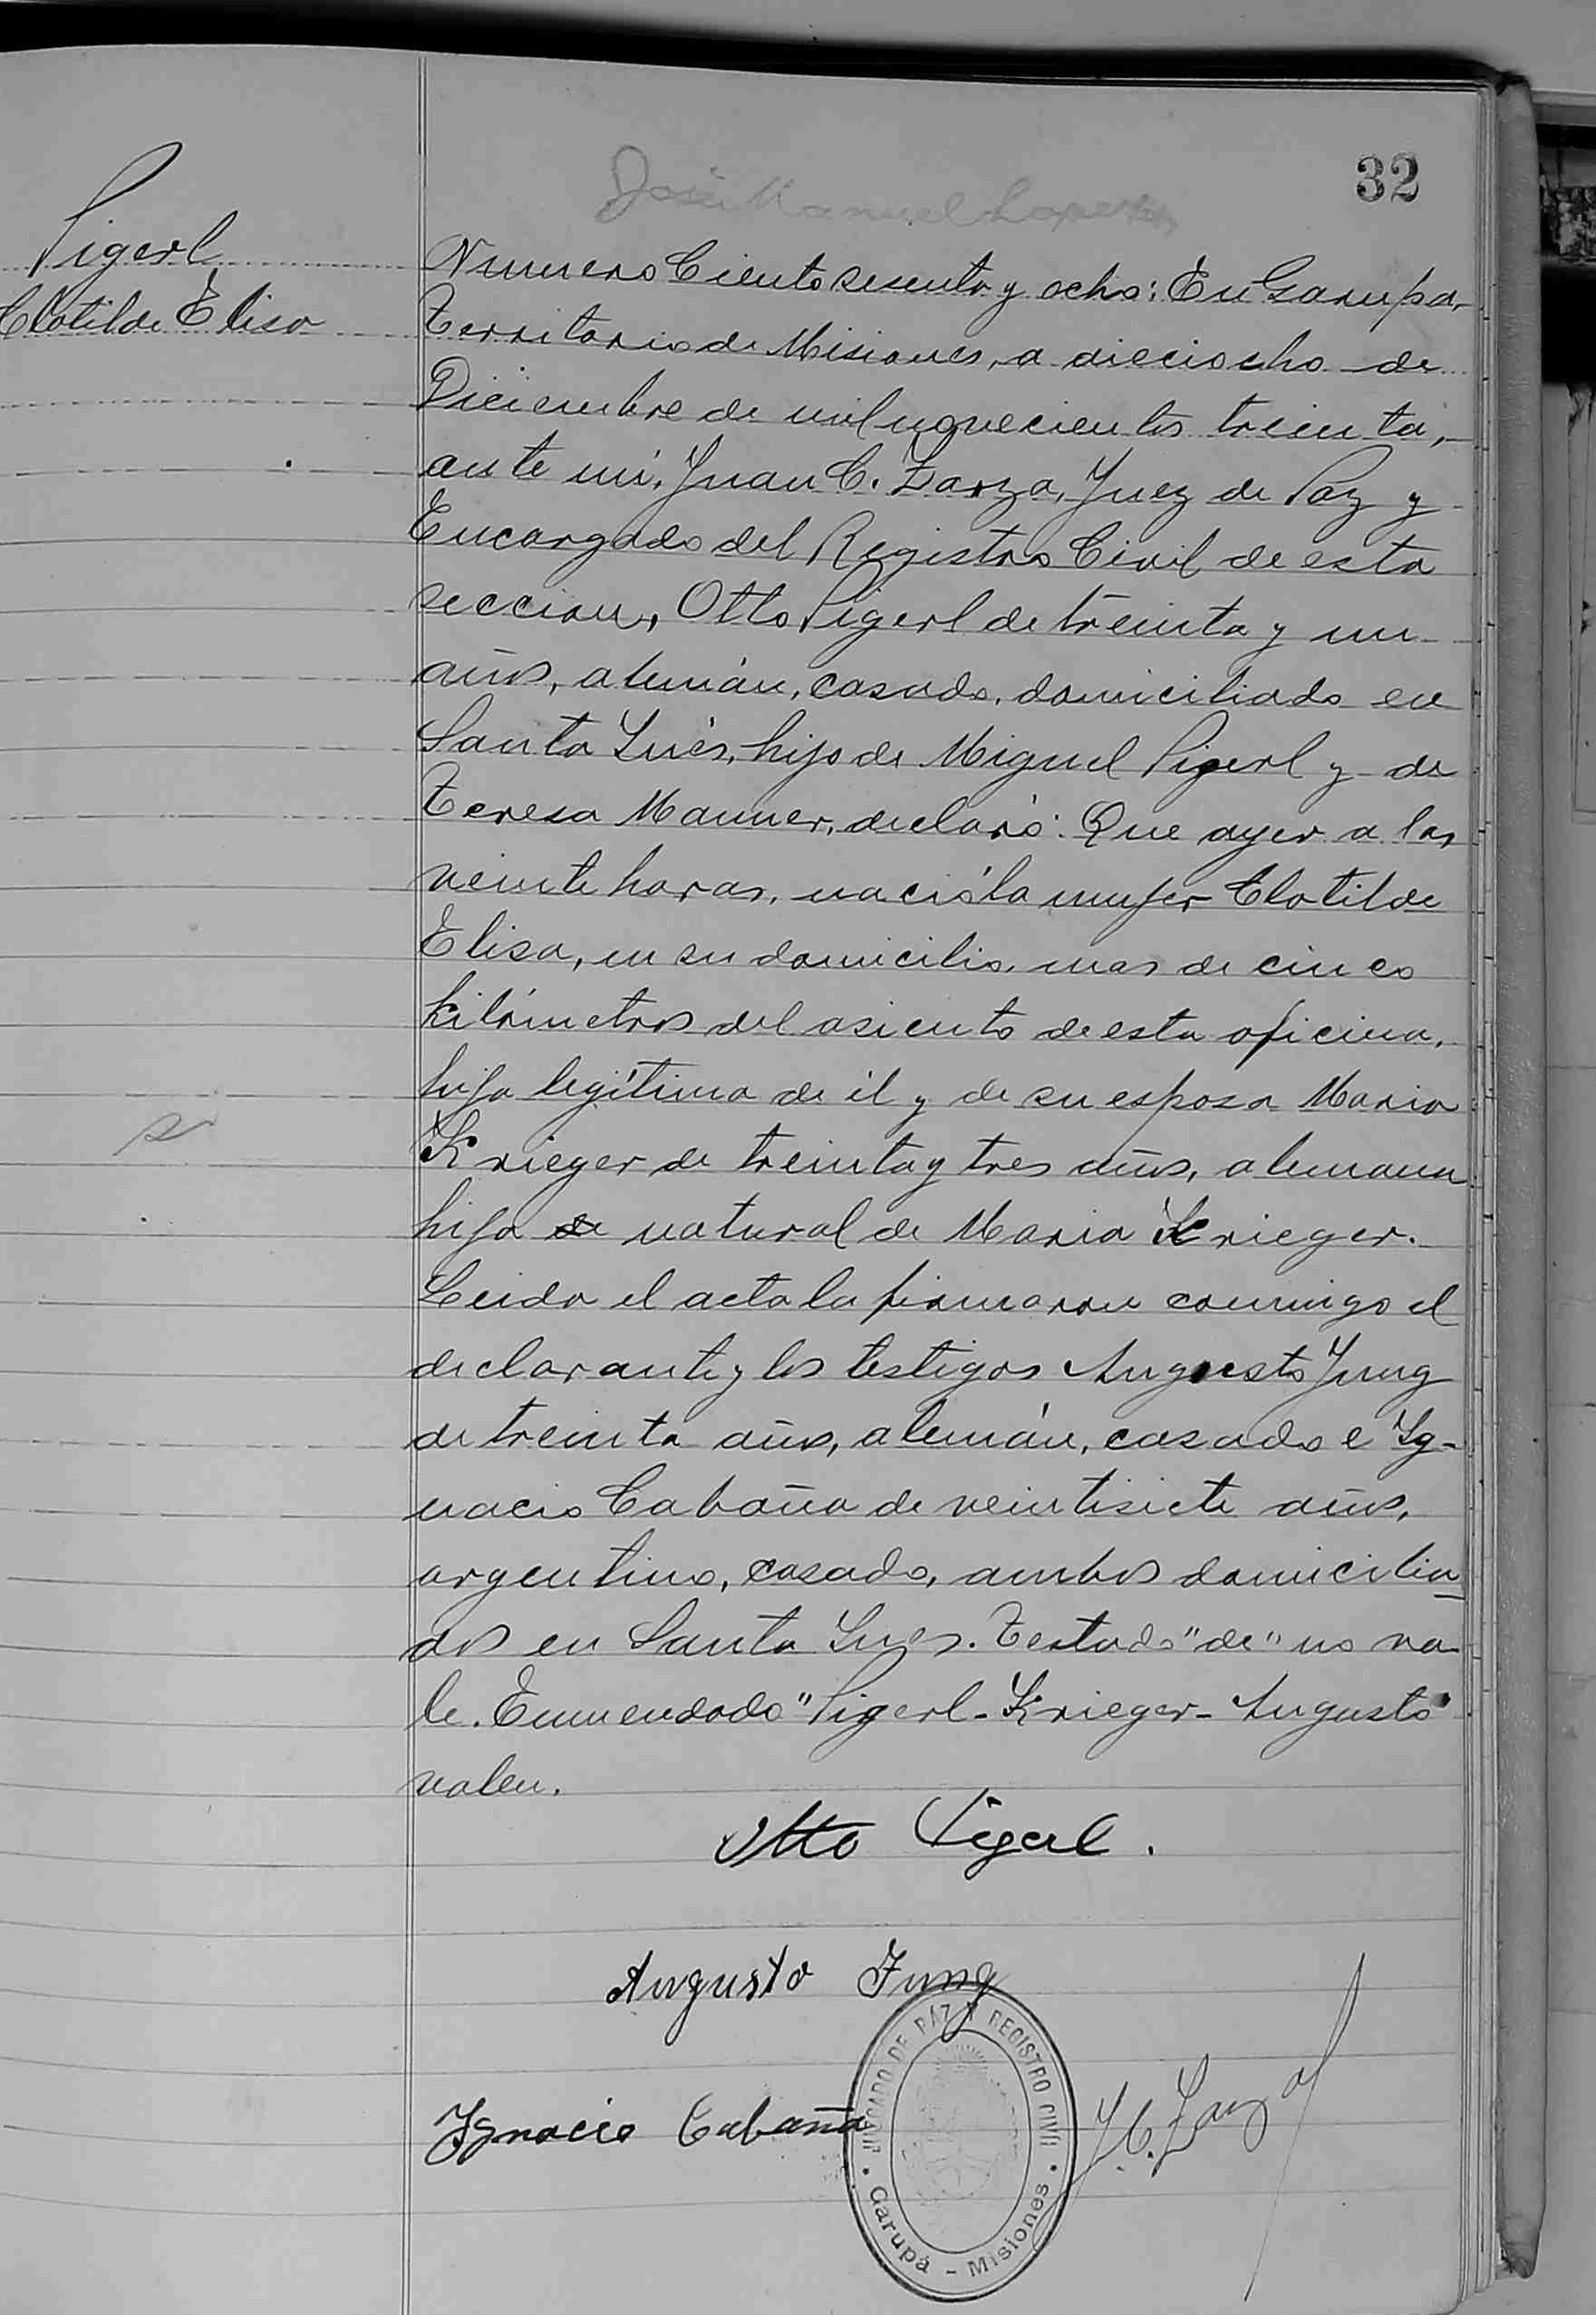 32
José Manuel Lopez
Pigerl
Clotilde Elisa
Numero Ciento sesenta y ocho: En Garupa,
Territorio de Misiones, a dieciocho de
Diciembre de mil novecientos treinta,
ante mi, Juan C. Zarza, Juez de Paz y
Encargado del Registro Civil de esta
seccion, Otto Pigerl de treinta y un
años, alemán, casado, domiciliado en
Santa Inés, hijo de Miguel Pigerl y de
Teresa Manner, declaró: Que ayer a las
veinte horas, nació la mujer Clotilde
Elisa, en su domicilio, mas de cinco
kilómetros del asiento de esta oficina,
hija legítima de él y de su esposa Maria
Krieger de treinta y tres años, alemana
hija de natural de Maria Krieger.
Leida el acta la firmaron conmigo el
declarante y los testigos Augusto Jung
de treinta años, alemán, casado e Ig-
nacio Cabaña de veintisiete años,
argentino, casado, ambos domicilia
dos en Santa Ines. Testado "de" no va-
le. Enmendado "Pigerl - Krieger - Augusto"
valen.
Otto Pigerl.
Augusto Jung
Ignacio Cabaña
J.C. Zarza
JUZGADO DE PAZ Y REGISTRO CIVIL
Garupá - Misiones